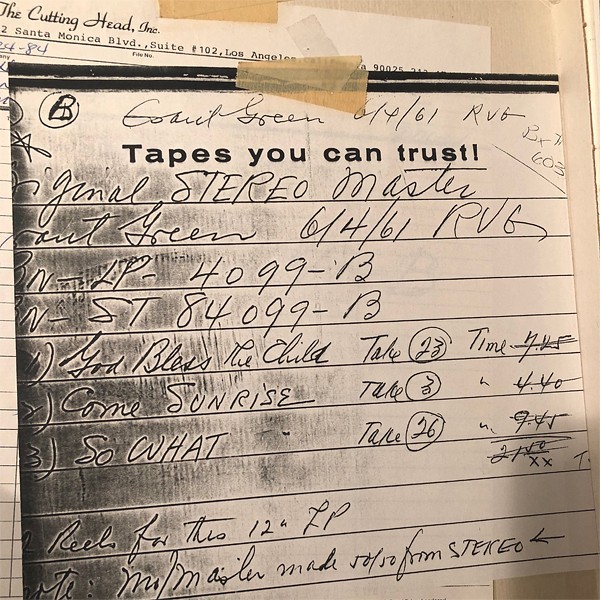 The Cutting Head, Inc.
2 Santa Monica Blvd., Suite #102, Los Angeles, a 90025
24-84
File No.
B Grant Green 6/4/61 RVG
Tapes you can trust!
riginal STEREO Master
rant Green 6/4/61 RVG
N-LP- 4099-B
N-ST 84099-B
1) God Bless the Child Take 23 Time 7.25
2) Come SUNRISE TAKE 3 " 4.40
3) SO WHAT Take 26 " 9.45
21 50
xx
Reels for this 12" LP
note: Mo/Master made 50/50 from STEREO